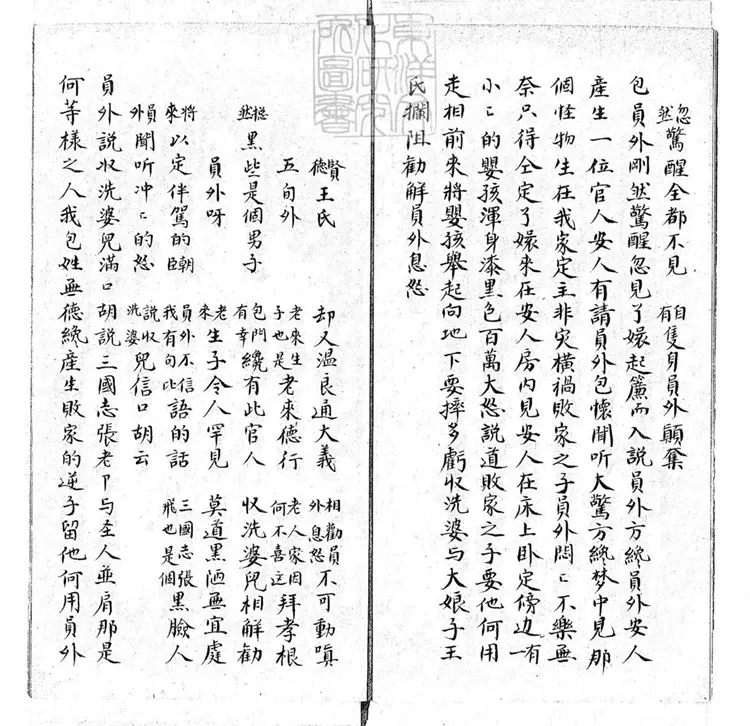 忽然驚醒全都不見　自有隻身員外顛奔
包員外剛然驚醒忽見了嬛起簾而入說員外方纔員外安人
產生一位官人安人有請員外包懷聞听大驚方纔梦中見那
個怪物生在我家定主非灾橫禍敗家之子員外悶〻不樂無
奈只得仝定了嬛來在安人房內見安人在床上卧定傍边一有
小〻的嬰孩渾身漆黑色百萬大怒說道敗家之子要他何用
走相前來將嬰孩舉起向地下要摔多虧収洗婆与大娘子王
氏攔阻勸解員外息怒
賢德王氏　却又温良通大義　相勸員外息怒不可動嗔
五旬外　老來生子也是老來德行　老人家因何不喜这拜孝根
總然黑些是個男子　包門有幸纔有此官人　収洗婆兒相解勸
員外呀　老來生子令人罕見　莫道黑陋無宜處
將來以定伴駕的朝臣　員外不信我有句比語的話　三國志張飛也是個黑臉人
員外聞听冲〻的怒　說収洗婆兒信口胡云
員外說収洗婆兒滿口胡說三國志張老卩与圣人並肩那是
何等樣之人我包姓無德纔產生敗家的逆子留他何用員外